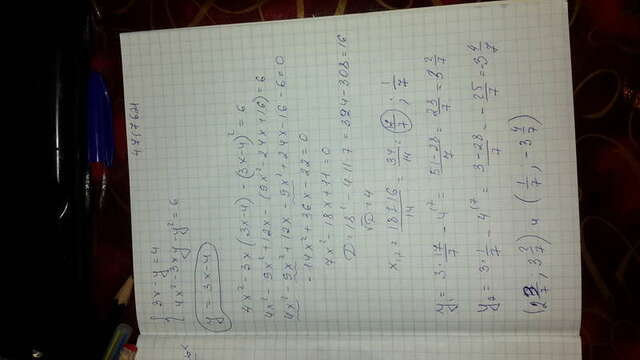 4717621
{ 3x-y=4
{ 4x²-3xy-y²=6
y=3x-4
4x²-3x(3x-4)-(3x-4)²=6
4x²-9x²+12x-(9x²-24x+16)=6
4x²-9x²+12x-9x²+24x-16-6=0
-14x²+36x-22=0
7x²-18x+11=0
D=18²-4·11·7=324-308=16
√D=4
x₁,₂=(18±16)/14=34/14=17/7; 1/7
y₁=3·17/7-4=(51-28)/7=23/7=3 2/7
y₂=3·1/7-4=(3-28)/7=-25/7=-3 4/7
(2 3/7, 3 2/7) и (1/7, -3 4/7)